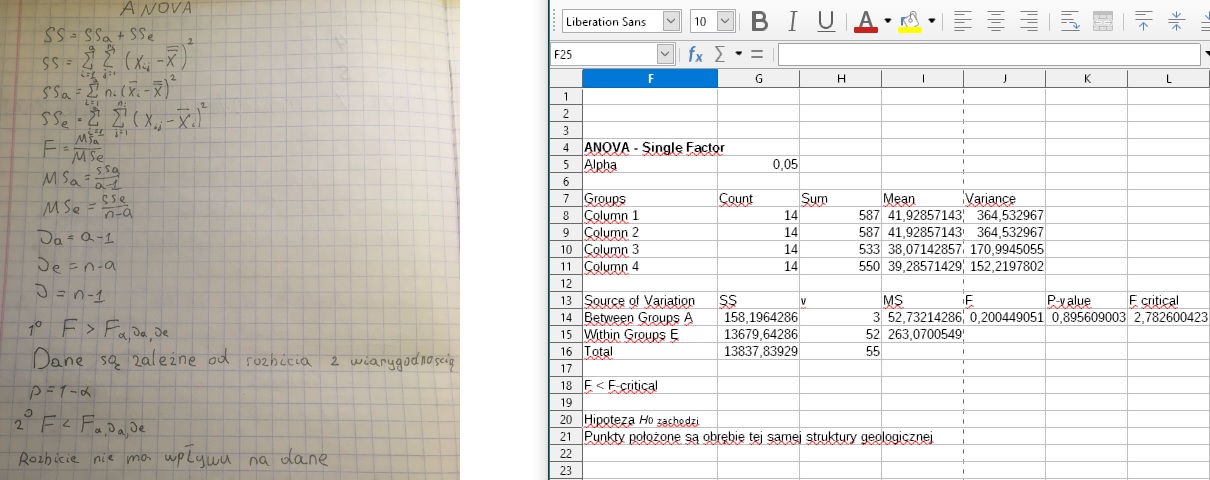 ANOVA
SS = SSa + SSe
SS = Σ i=1 a Σ j=1 (Xij - X̿)²
SSa = Σ i=1 a ni (X̄i - X̿)²
SSe = Σ i=1 Σ j=1 ni (Xij - X̄i)²
F = MSa / MSe
MSa = SSa / a-1
MSe = SSe / n-a
νa = a-1
νe = n-a
ν = n-1
1° F > Fα,νa,νe
Dane są zależne od rozbicia z wiarygodnością
p = 1-α
2° F < Fα,νa,νe
Rozbicie nie ma wpływu na dane
Liberation Sans 10 B I U A
F25 fx Σ =
F G H I J K L
1
2
3
4 ANOVA - Single Factor
5 Alpha 0,05
6
7 Groups Count Sum Mean Variance
8 Column 1 14 587 41,92857143 364,532967
9 Column 2 14 587 41,92857143 364,532967
10 Column 3 14 533 38,07142857 170,9945055
11 Column 4 14 550 39,28571429 152,2197802
12
13 Source of Variation SS ν MS F P-value F critical
14 Between Groups A 158,1964286 3 52,73214286 0,200449051 0,895609003 2,782600423
15 Within Groups E 13679,64286 52 263,0700549
16 Total 13837,83929 55
17
18 F < F-critical
19
20 Hipoteza H0 zachodzi
21 Punkty położone są obrębie tej samej struktury geologicznej
22
23